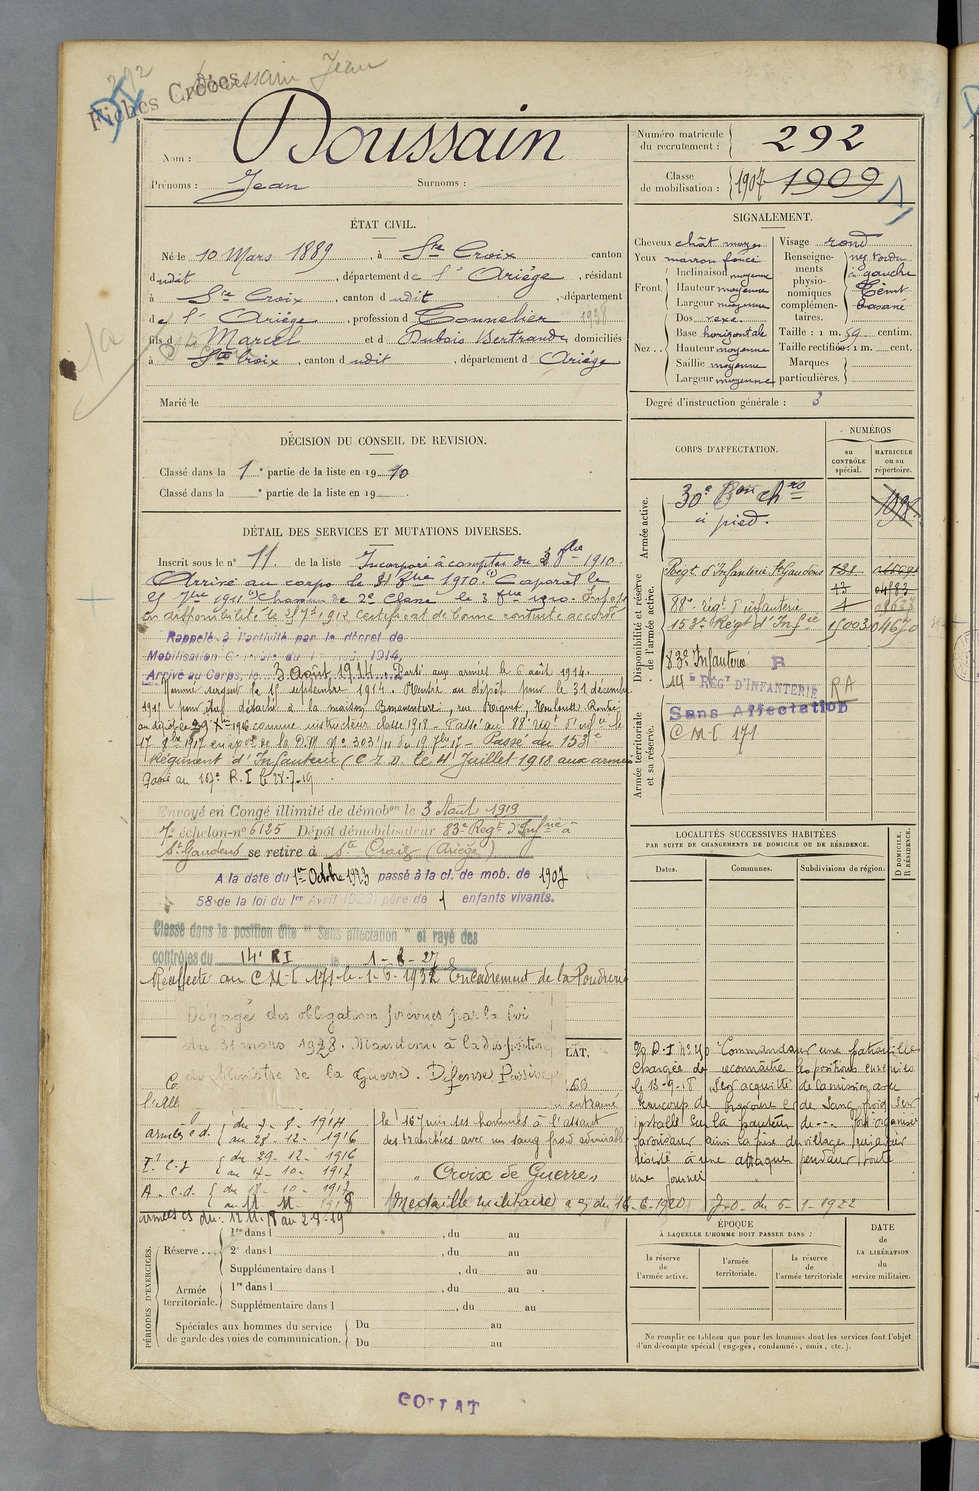 292 Doussain Jean
Fiches Croões
Nom : Doussain
Prénoms : Jean Surnoms :
Numéro matricule du recrutement : 292
Classe de mobilisation : 1907 1909
ÉTAT CIVIL.
Né le 10 Mars 1889, à Ste Croix canton
dudit, département de l'Ariège, résidant
à Ste Croix, canton dudit, département
de l'Ariège, profession de Tonnelier 1938
fils de Marcel et d Dubois Bertrande domiciliés
à Ste Croix, canton dudit, département d Ariège
Marié le
SIGNALEMENT.
Cheveux chât moyen
Yeux marron foncé
Front. Inclinaison moyenne
Hauteur moyenne
Largeur moyenne
Nez.. Dos vexe
Base horizontale
Hauteur moyenne
Saillie moyenne
Largeur moyenne
Visage rond
Renseignements physionomiques complémentaires. nez tordu à gauche Teint basané
Taille : 1 m. 59 centim.
Taille rectifiée: 1 m. cent.
Marques particulières.
Degré d'instruction générale : 3
DÉCISION DU CONSEIL DE REVISION.
Classé dans la 1e partie de la liste en 1910
Classé dans la e partie de la liste en 19 .
CORPS D'AFFECTATION.
NUMÉROS
au CONTRÔLE spécial.
MATRICULE ou au répertoire.
Armée active.
30e Bon chrs
à pied.
Disponibilité et réserve de l'armée active.
Regt d'Infanterie St Gaudens
88e rég. d'infanterie
153e Régt d'Infie 15003 04670
83e Infanterie
14e REGt D'INFANTERIE RA
Sans Affectation
C M I 171
Armée territoriale et sa réserve.
DÉTAIL DES SERVICES ET MUTATIONS DIVERSES.
Inscrit sous le n° 11. de la liste Incorporé à compter du 3 8bre 1910.
Arrivé au corps le 8bre 1910. Caporal le
25 7bre 1911 Chasseur de 2e Classe le 3 8bre 1910.
en disponibilité le 25 7bre 1912 Certificat de bonne conduite accordé
Rappelé à l'activité par le décret de
Mobilisation Générale du 1er août 1914,
Arrivé au Corps, le 3 Août 1914. Parti aux armées le 6 août 1914.
Nommé sergent le 15 septembre 1914. Rentré au dépôt le 31 décembre
détaché à la maison Bonaventure, rue Riquet, Toulouse. Rentré
au dépôt le 29 Xbre 1916 comme instructeur classe 1918 - Passé au 88e Regt d'infie le
17 8bre 1917 de la D.M. N° 303/11 du 19 7bre 17 - Passé au 153e
Régiment d'Infanterie (C.I.D. le 4 Juillet 1918 aux armées
Passé au 167e R.I le 28-7-19
Envoyé en Congé illimité de démobon le 3 Août 1919
7e échelon n° 6125 Dépôt démobilisateur 83e Régt d'Infrie à
St Gaudens se retire à Ste Croix (Ariège)
A la date du 1er Octobre 1923 passé à la cl. de mob. de 1907
58 de la loi du 1er Avril 1923) père de 1 enfants vivants.
Classé dans la position dite "Sans affectation" et rayé des
contrôles du 14e RI le 1-8-27
Réaffecté au C M I 171 le 1-6-1932 Encadrement de la Poudrerie
Dégagé des obligations prévues par la loi
du 31 mars 1928. Maintenu à la disposition
du Ministre de la Guerre. Défense Passive
LOCALITÉS SUCCESSIVES HABITÉES
PAR SUITE DE CHANGEMENTS DE DOMICILE OU DE RÉSIDENCE.
Dates. Communes. Subdivisions de région.
D DOMICILE. R RÉSIDENCE.
armées c.d. du 7-8-1914 au 28-12-1916
I. c.d du 29-12-1916 au 17-10-1917
A. c.d. du 18-10-1917 au 11-11-1918
armées cs du 12.11.18 au 2-8-19
entrainé
le 16 juin ses hommes à l'assaut
des tranchées avec un sang froid admirable
"Croix de Guerre"
Médaille militaire du 16-6-1920 J.O. du 6-1-1922
Commandant une patrouille
chargée de reconnaître les positions ennemies
le 13-9-18 s'est acquitté de la mission avec
beaucoup de bravoure et de sang froid s'est
installé sur la hauteur de ---
favorisant ainsi la prise du village qui avait
résisté à une attaque pendant toute
une journée
PÉRIODES D'EXERCICES.
Réserve... 1re dans l , du au
2e dans l , du au
Supplémentaire dans l , du au
Armée territoriale. 1re dans l , du au
Supplémentaire dans l , du au
Spéciales aux hommes du service de garde des voies de communication. Du au
Du au
ÉPOQUE
À LAQUELLE L'HOMME DOIT PASSER DANS :
la réserve de l'armée active.
l'armée territoriale.
la réserve de l'armée territoriale
DATE DE LA LIBÉRATION du service militaire.
Ne remplir ce tableau que pour les hommes dont les services font l'objet
d'un décompte spécial (engagés, condamnés, omis, etc.).